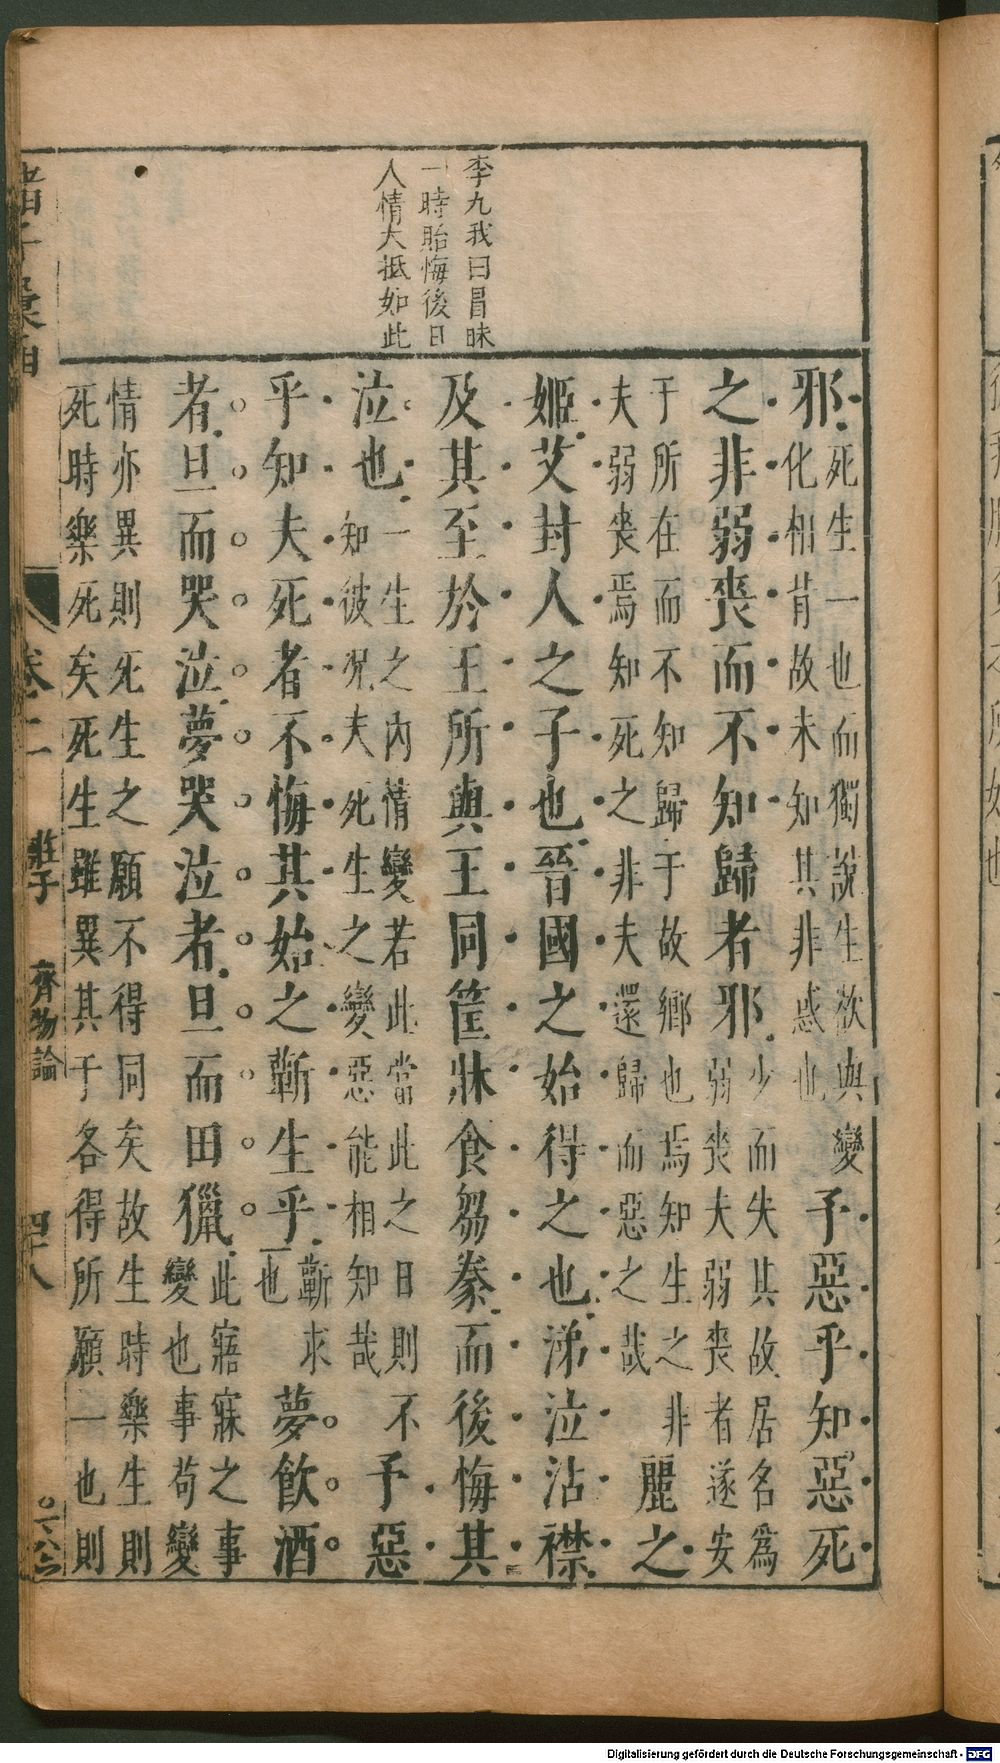 李九我曰冒昧
一時貽悔後日
人情大抵如此
邪死生一也而獨說生欲與變
化相背故未知其非惑也予惡乎知惡死
之非弱喪而不知歸者邪少而失其故居名為
弱喪夫弱喪者遂安
于所在而不知歸于故鄉也焉知生之非
夫弱喪焉知死之非夫還歸而惡之哉麗之
姬艾封人之子也晉國之始得之也涕泣沾襟
及其至於王所與王同筐牀食芻豢而後悔其
泣也一生之內情變若此當此之日則不
知彼況夫死生之變惡能相知哉予惡
乎知夫死者不悔其始之蘄生乎蘄求
也夢飲酒
者旦而哭泣夢哭泣者旦而田獵此寤寐之事
變也事苟變
情亦異則死生之願不得同矣故生時樂生則
死時樂死矣死生雖異其于各得所願一也則
諸子彙函 卷二 莊子 齊物論 四十八
Digitalisierung gefördert durch die Deutsche Forschungsgemeinschaft - DFG